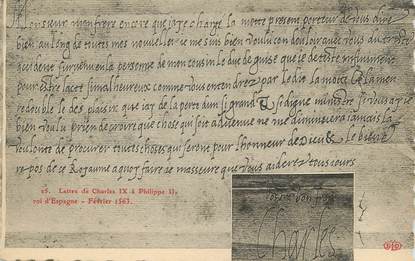 Monsieur mon frere encore que jaye charge la motte present porteur de vous dire
bien au long de toutes mes nouvelles je me suis bien voulu condouloir avec vous du triste
accident survenu en la personne de mon cousin le duc de guise que je deteste infiniment
pour estre lacte si malheureux comme vous entendrez par ledit la motte
redouble le desplaisir que jay de la perte dun si grand & si digne ministre
bien voulu prier de croire que chose qui soit advenue ne me diminuera jamais la
voulonte de procurer toutes choses qui seront pour lhonneur de Dieu & le bien et
repos de ce Royaume a quoy faire je masseure que vous aiderez tousjours
25. Lettre de Charles IX à Philippe II,
roi d'Espagne - Février 1563.
Votre bon frere
Charles
ELD